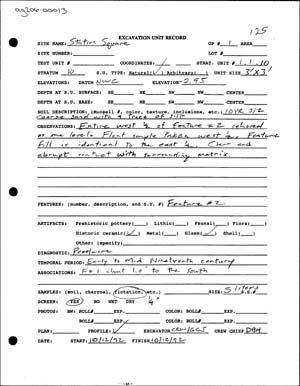 ag206-00013
125
EXCAVATION UNIT RECORD
SITE NAME: Station Square OP # 1 AREA
SITE NUMBER: LOT #
TEST UNIT # COORDINATES: / STRAT. UNIT # 1.1.10
STRATUM 10 S.U. TYPE: Natural(✓) Arbitrary( ) UNIT SIZE 3'X3'
DATUM: NWC ELEVATION: 2.95
DEPTH AT S.U. SURFACE: SE NE SW NW CENTER
DEPTH AT S.U. BASE: SE NE SW NW CENTER
SOIL DESCRIPTION: (Munsell #, color, texture, inclusions, etc.) 10YR 3/2
coarse sand with a trace of silt
OBSERVATIONS: Entire west 1/2 of Feature #2 removed
as one level. Float sample taken west 1/2. Feature
fill is identical to the east 1/2. Clear and
abrupt contact with surrounding matrix.
FEATURES: (number, description, and S.U. #) Feature #2
ARTIFACTS: Prehistoric pottery( ) Lithic( ) Faunal( ) Flora( )
Historic ceramic(✓) Metal( ) Glass(✓) Shell( )
Other: (specify)
DIAGNOSTIC: Pearlware
TEMPORAL PERIOD: Early to Mid Nineteenth century
ASSOCIATIONS: F#1 about 1.0' to the South
SAMPLES: (soil, charcoal, flotation, etc.) SIZE: 5 liters
SCREEN: YES NO WET DRY 1/4"
PHOTOS: BW: ROLL# EXP. COLOR: ROLL# EXP.
ROLL# EXP. ROLL# EXP.
PLAN: PROFILE: ✓ EXCAVATOR CRW/GCS CREW CHIEF DBH
DATE: START 10/12/92 FINISH 10/12/92